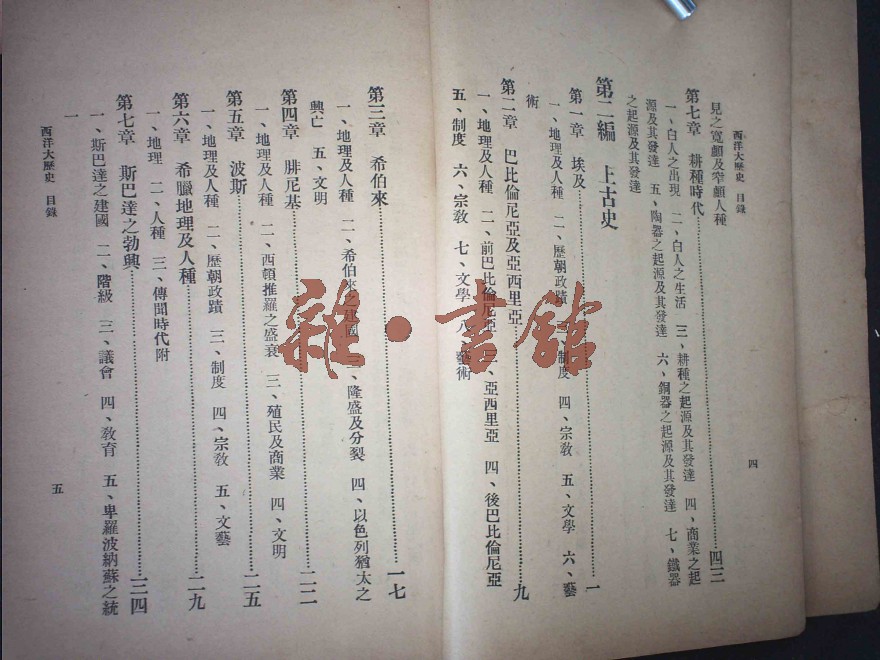 西洋大歷史 目錄
四
見之寬顱及窄顱人種
第七章 耕種時代…………四三
一、白人之出現 二、白人之生活 三、耕種之起源及其發達 四、商業之起
源及其發達 五、陶器之起源及其發達 六、銅器之起源及其發達 七、鐵器
之起源及其發達
第二編 上古史
第一章 埃及…………一
一、地理及人種 二、歷朝政蹟 三、制度 四、宗敎 五、文學 六、藝
術
第二章 巴比倫尼亞及亞西里亞…………九
一、地理及人種 二、前巴比倫尼亞 三、亞西里亞 四、後巴比倫尼亞
五、制度 六、宗敎 七、文學 八、藝術
第三章 希伯來…………一七
一、地理及人種 二、希伯來之建國 三、隆盛及分裂 四、以色列猶太之
興亡 五、文明
第四章 腓尼基…………二二
一、地理及人種 二、西頓推羅之盛衰 三、殖民及商業 四、文明
第五章 波斯…………二五
一、地理及人種 二、歷朝政蹟 三、制度 四、宗敎 五、文藝
第六章 希臘地理及人種…………二九
一、地理 二、人種 三、傳聞時代附
第七章 斯巴達之勃興…………三四
一、斯巴達之建國 二、階級 三、議會 四、敎育 五、卑羅波納蘇之統
一
西洋大歷史 目錄
五
雜·書館